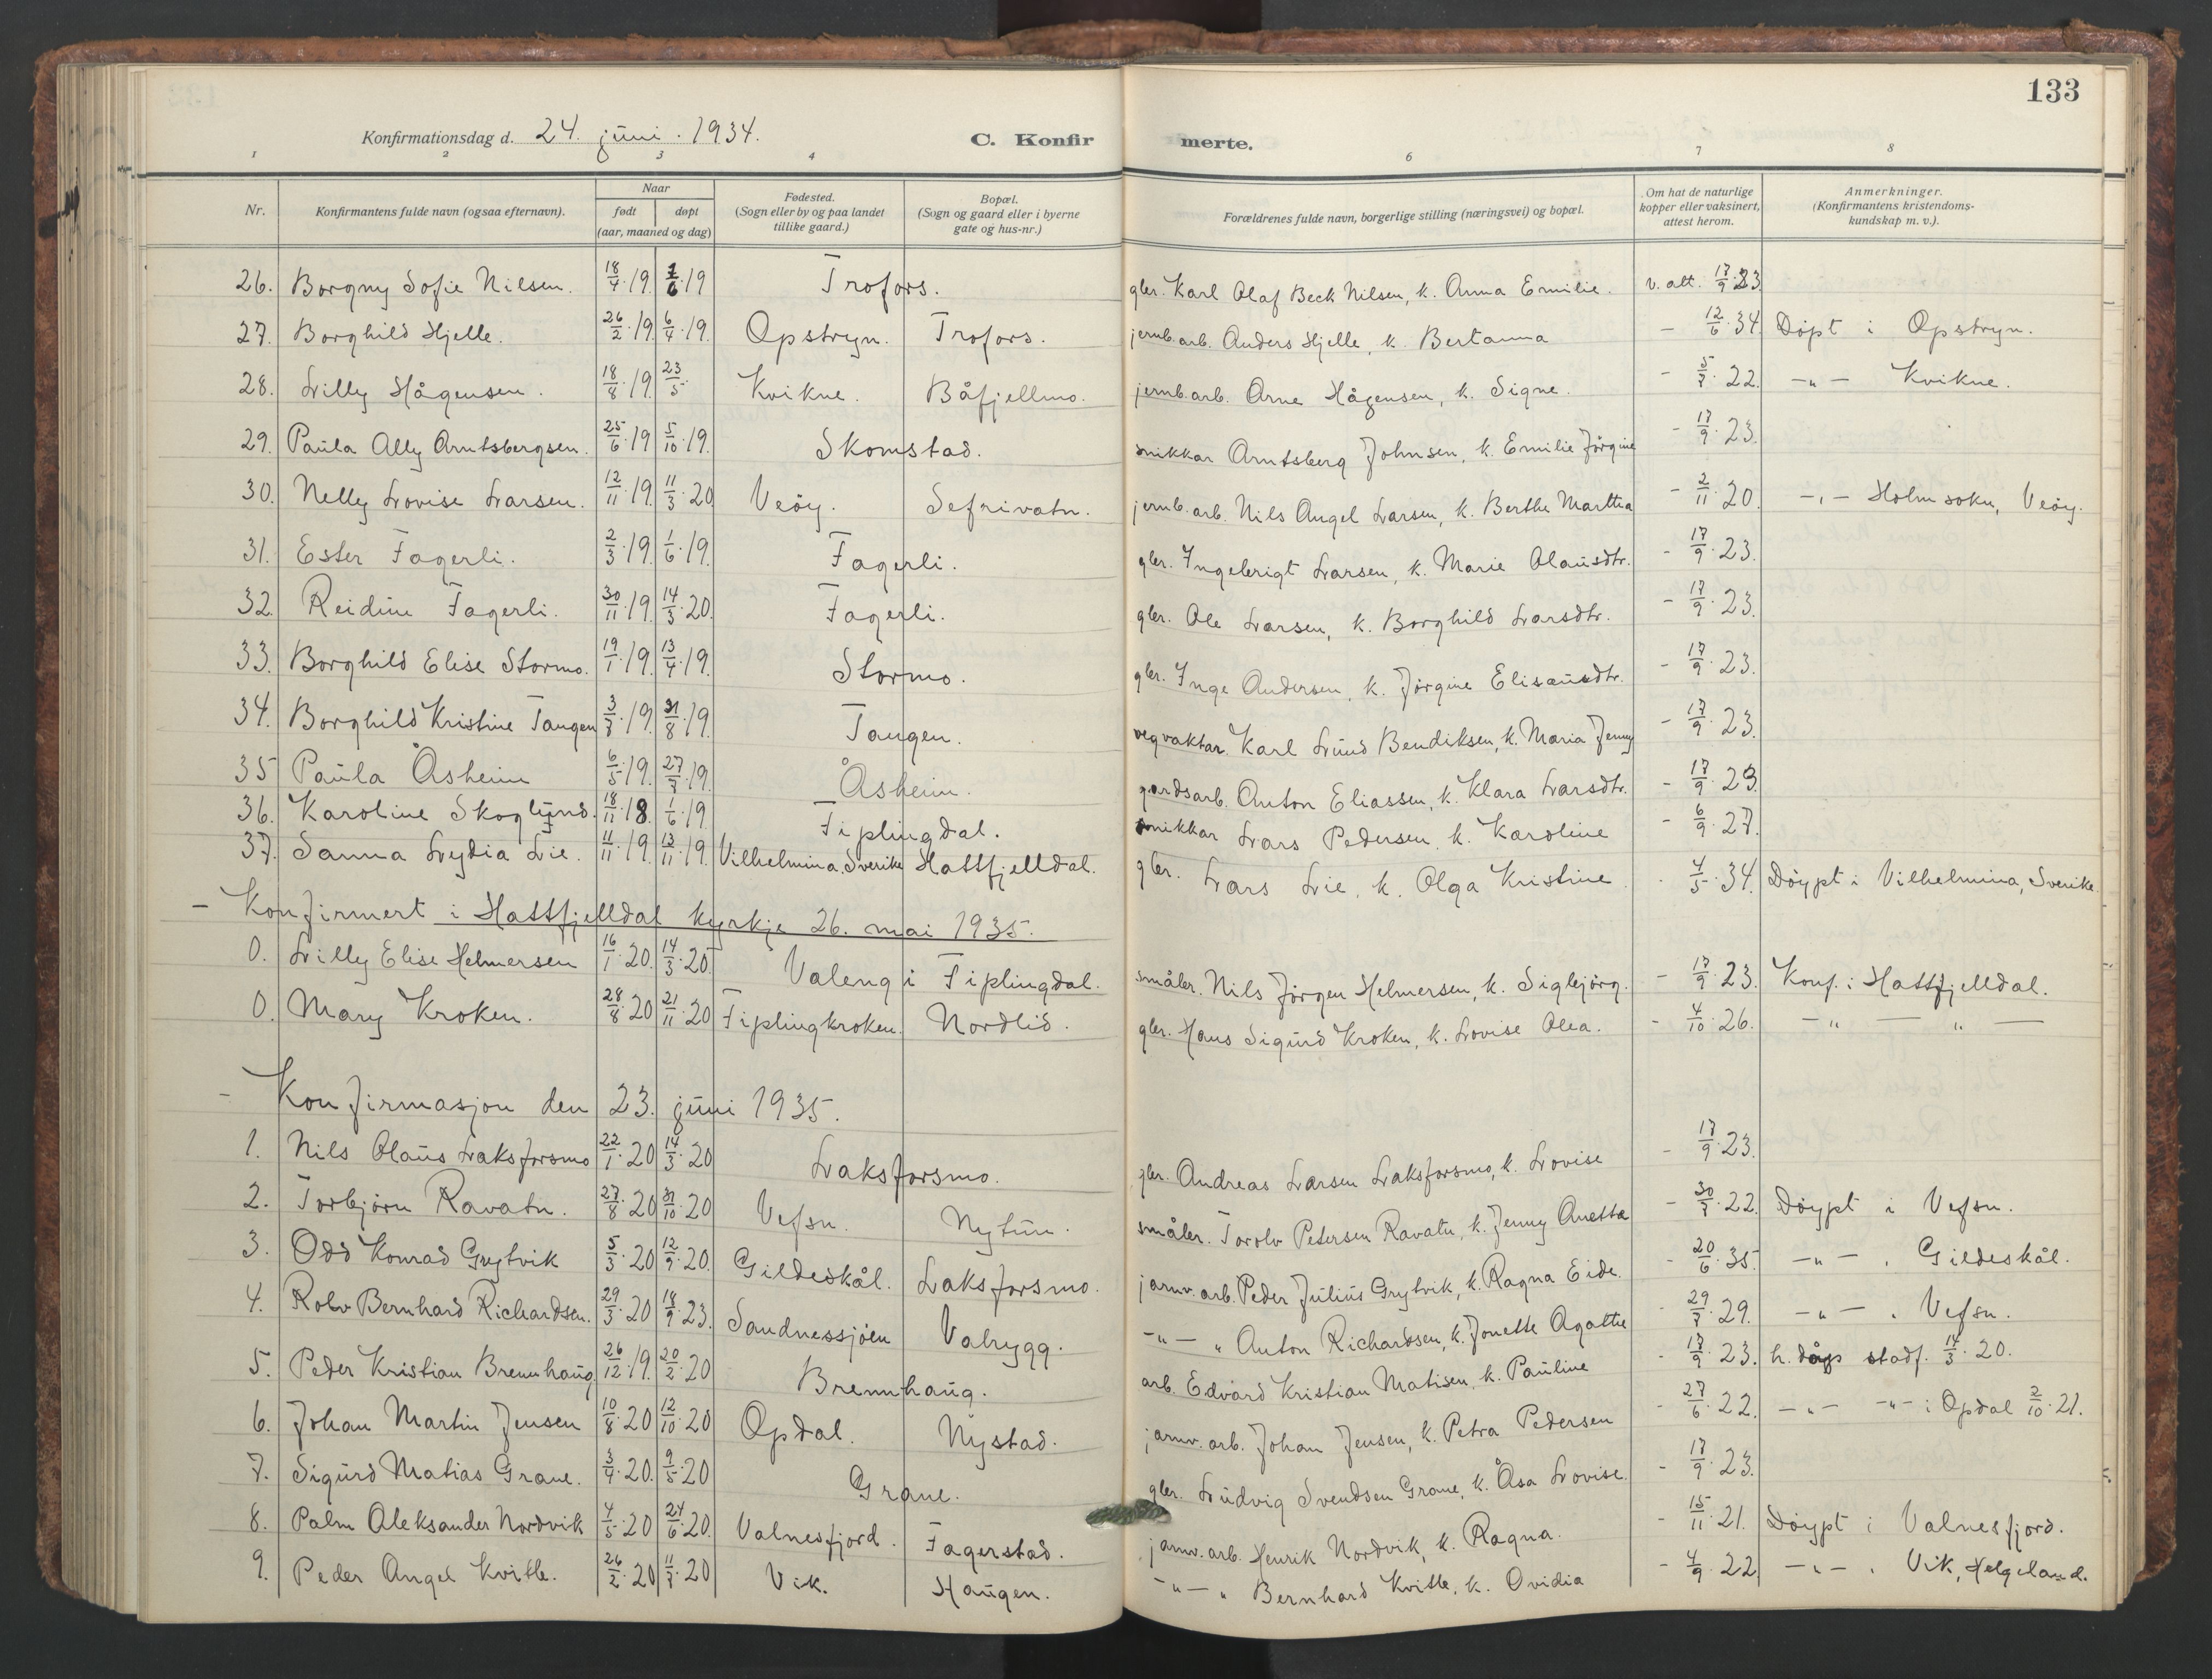 133
Konfirmationsdag d. 24. juni. 1934. C. Konfirmerte.
1 2 3 4 6 7 8
Nr. Konfirmantens fulde navn (ogsaa efternavn). Naar født døpt (aar, maaned og dag) Fødested. (Sogn eller by og paa landet tillike gaard.) Bopæl. (Sogn og gaard eller i byerne gate og hus-nr.) Forældrenes fulde navn, borgerlige stilling (næringsvei) og bopæl. Om hat de naturlige kopper eller vaksinert, attest herom. Anmerkninger. (Konfirmantens kristendoms-kundskap m. v.).
26. Borgny Sofie Nilsen. 18/4.19. 1/6.19 Trofors. gbr. Karl Olaf Beck Nilsen, k. Anna Emilie. v. att. 17/9.23.
27. Borghild Hjelle. 26/2.19. 6/4.19. Opstryn. Trofors. jernb.arb. Anders Hjelle, k. Bertanna – 12/6.34. Döpt i Opstryn.
28. Lilly Hågensen. 18/8.19. 23/5. Kvikne. Båfjellmo. jernb.arb. Arne Hågensen, k. Signe. – 5/7.22. –„– Kvikne.
29. Paula Ally Arntsbergsen. 25/6.19 5/10.19. Skomstad. snikkar Arntsberg Johnsen, k. Emilie Jörgine – 17/9.23.
30. Nelly Lovise Larsen. 12/11.19. 11/3.20 Veöy. Sefrivatn. jernb.arb. Nils Angel Larsen, k. Berthe Marthea – 2/11.20. –„– Holm sokn, Veöy.
31. Ester Fagerli. 2/3.19. 1/6.19. Fagerli. gbr. Ingebrigt Larsen, k. Marie Olausdtr. – 17/9.23.
32. Reidun Fagerli. 30/11.19. 14/3.20. Fagerli. gbr. Ole Larsen, k. Borghild Larsdtr. – 17/9.23.
33. Borghild Elise Stormo. 19/1.19. 13/4.19. Stormo. gbr. Inge Andersen, k. Jörgine Elisæusdtr. – 17/9.23.
34. Borghild Kristine Tangen 3/7.19. 31/8.19. Tangen. vegvaktar Karl Lund Bendiksen, k. Maria Jenny – 17/9.23.
35 Paula Åsheim 6/5.19. 27/7.19. Åsheim. gardsarb. Anton Eliassen, k. Klara Larsdtr. – 17/9.23.
36. Karoline Skoglund. 18/11.18. 1/6.19 Fiplingdal. snikkar Lars Pedersen, k. Karoline – 6/9.27.
37. Sanna Lydia Lie. 11/11.19. 13/11.19. Vilhelmina, Sverike Hattfjelldal. gbr. Lars Lie, k. Olga Kristine. – 4/5.34. Döypt i Vilhelmina, Sverike.
– Konfirmert i Hattfjelldal kyrkje 26. mai 1935.
0. Lilly Elise Helmersen 16/1.20. 14/3.20. Valeng i Fiplingdal. småbr. Nils Jörgen Helmersen, k. Sigbjörg. – 17/9.23. Konf. i Hattfjelldal.
0. Mary Kroken. 28/8.20 21/11.20 Fiplingkroken. Nordlid. gbr. Hans Sigurd Kroken, k. Lovise Olea. – 4/10.26. –„– „ –
– Konfirmasjon den 23. juni 1935.
1. Nils Olaus Laksforsmo 22/1.20 14/3.20 Laksforsmo. gbr. Andreas Larsen Laksforsmo, k. Lovise – 17/9.23.
2. Torbjörn Ravatn. 27/8.20 31/10.20 Vefsn. Nytun. småbr. Torolv Petersen Ravatn, k. Jenny Anetta – 30/7.22. Döypt i Vefsn.
3. Odd Konrad Grytvik 5/3.20 12/9.20. Gildeskål. Laksforsmo. jarnv.arb. Peder Julius Grytvik, k. Ragna Eide. – 20/6.35. –„– . Gildeskål.
4. Rolv Bernhard Richardsen. 29/3.20 18/9.23. Sandnessjöen Valrygg. –„– „ Anton Richardsen, k. Jonette Agathe – 29/7.29. –„– . Vefsn.
5. Peder Kristian Brennhaug 26/12.19. 20/2.20 Brennhaug. arb. Edvard Kristian Matisen, k. Pauline – 17/9.23. h.döyp stadf. 14/3.20.
6. Johan Martin Jensen 10/8.20 12/10.20 Opdal. Nystad. jarnv.arb. Johan Jensen, k. Petra Pedersen – 27/6.22. –„– –„– i Opdal 2/10.21.
7. Sigurd Matias Grane. 3/4.20. 9/5.20 Grane. gbr. Ludvig Svendsen Grane, k. Åsa Lovise. – 17/9.23.
8. Palm Aleksander Nordvik 4/5.20 24/6.20. Valnesfjord. Fagerstad. jarnv.arb. Henrik Nordvik, k. Ragna. – 15/11.21. Döypt i Valnesfjord.
9. Peder Angel Kvitle. 26/2.20 11/7.20 Vik. Haugen. –„– „ Bernhard Kvitle, k. Ovidia – 4/9.22. –„– . Vik, Helgeland.